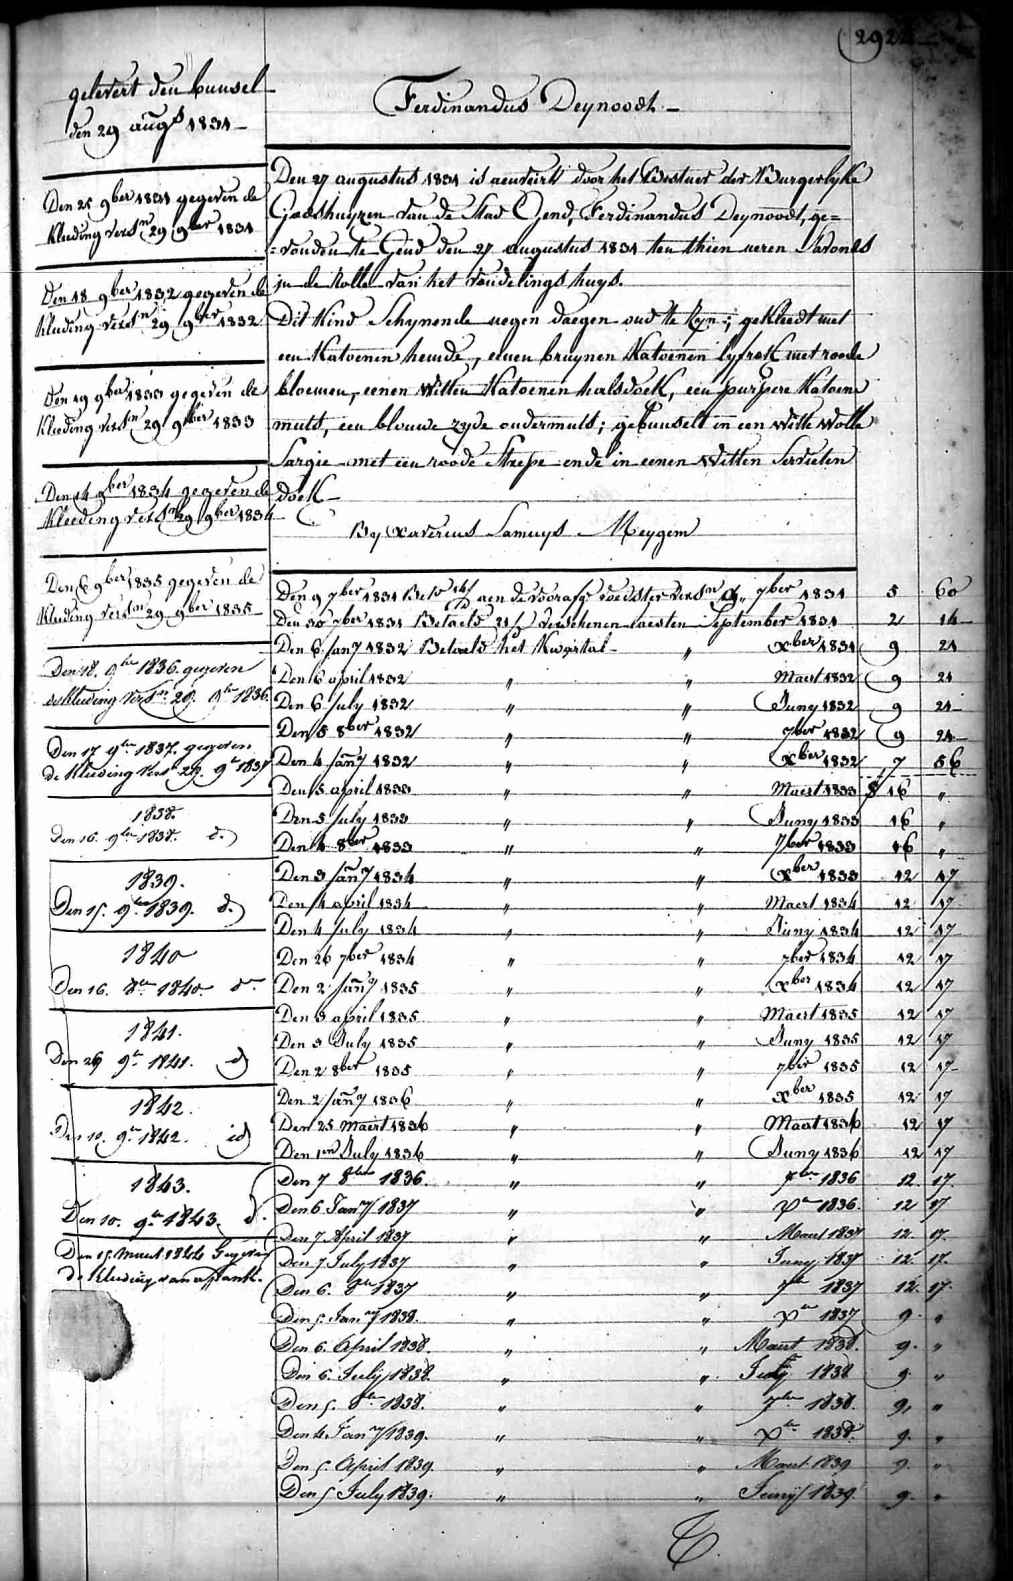 292
gelevert den bunsel
den 29 augs 1831
Ferdinandus Deynoodt
Den 25 9ber 1831 gegeven de
kleding versn 29 9ber 1831
Den 18 9ber 1832 gegeven de
kleding versn 29 9ber 1832
Den 19 9ber 1833 gegeven de
kleding versn 29 9ber 1833
Den 14 9ber 1834 gegeven de
kleeding versn 29 9ber 1834
Den 6 9ber 1835 gegeven de
kleding versn 29 9ber 1835
Den 18. 9ber 1836. gegeven
de kleeding versn 29. 9br 1836.
Den 17 9ber 1837. gegeven
de kleeding versn 29. 9br 1837
1838.
Den 16. 9ber 1838. d.
1839.
Den 15. 9ber 1839. d.
1840
Den 16. 1840. do
1841.
Den 26 9br 1841. id
1842.
Den 10. 9br 1842. id
1843.
Den 10. 9br 1843. d.
Den 15. Maert 1844 Gegeven
de kleding van
Den 27 augustus 1831 is door het Bestuer der Burgerlyke
Godshuyzen van de Stad Gend, Ferdinandus Deynoodt, ge=
=vonden te Gend den 27 augustus 1831 ten thien ueren s'avonds
in de Rolle van het vondelings huys.
Dit Kind Schynende negen daegen oud te zyn; gekleedt met
een Katoenen hemde, eenen bruynen Katoenen lyfrok met roode
bloemen, eenen witten Katoenen halsdoek, een purpere Katoene
muts, een blouwe zyde ondermuts; gebunselt in een witte wolle
Sargie met een roode Strepe ende in eenen witten Servieten
doek
By Xaverius Samuys Meygem
Den 9 7ber 1831 aen de voorafg voedster versn 7ber 1831 5 60
Den 30 7ber 1831 Betaelt 21/ verschenen laesten September 1831 2 14
Den 6 Jany 1832 Betaelt het Kwartal " xber 1831 9 24
Den 6 april 1832 " " Maert 1832 9 24
Den 6 July 1832 " " Juny 1832 9 24
Den 5 8ber 1832 " " 7ber 1832 9 24
Den 4 Jany 1832 " " xber 1832 7 56
Den 5 april 1833 " " Maert 1833 16 "
Den 5 July 1833 " " Juny 1833 16 "
Den 4 8ber 1833 " " 7ber 1833 16 "
Den 3 Jany 1834 " " xber 1833 12 17
Den 4 april 1834 " " Maert 1834 12 17
Den 4 July 1834 " " Juny 1834 12 17
Den 26 7ber 1834 " " 7ber 1834 12 17
Den 2 Jany 1835 " " xber 1834 12 17
Den 3 april 1835 " " Maert 1835 12 17
Den 3 July 1835 " " Juny 1835 12 17
Den 2 8ber 1835 " " 7ber 1835 12 17
Den 2 Jany 1836 " " xber 1835 12 17
Den 25 Maert 1836 " " Maert 1836 12 17
Den 1en July 1836 " " Juny 1836 12 17
Den 7 8ber 1836. " " 7ber 1836 12. 17.
Den 6 Jany 1837 " " Xber 1836. 12 17
Den 7 April 1837 " " Maert 1837 12. 17.
Den 7 July 1837 " " Juny 1837 12. 17.
Den 6. 8ber 1837 " " 7ber 1837 12. 17.
Den 5 Jany 1838. " " Xber 1837 9. "
Den 6. April 1838. " " Maert 1838. 9. "
Den 6. July 1838. " " 1838 9. "
Den 5. 8ber 1838. " " 7ber 1838. 9. "
Den 4. Jany 1839. " " Xber 1838. 9. "
Den 5. April 1839. " " Maert 1839 9. "
Den 5 July 1839. " " Junij 1839. 9. "